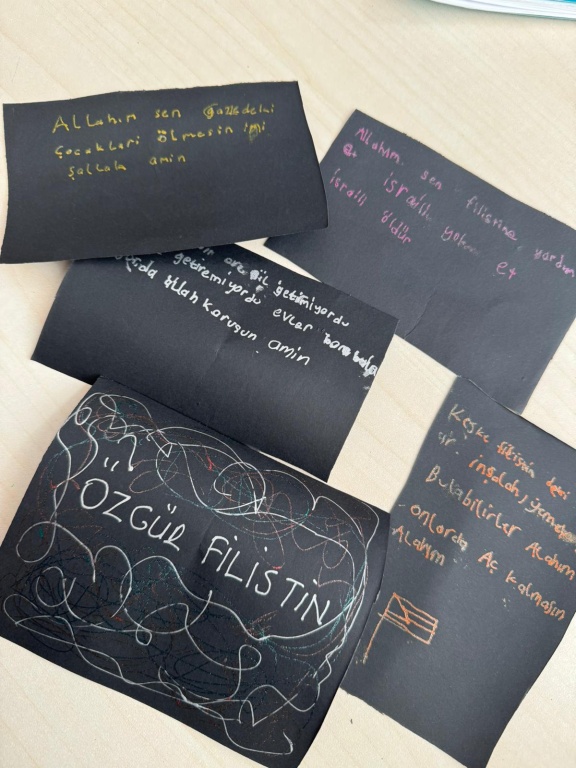 Allahım sen Gazzedeki
Çocukları ölmesin in
şallah amin
Allahım sen filistine yardım
et israili yok et
israili öldür
getirmiyordu
getiremiyordu evler
Allah Korusun amin
ÖZGÜR FİLİSTİN
Keşke filistin
inşalah, yemek
Bulabilirler Alahım
onlarda Aç kalmasın
Alahım